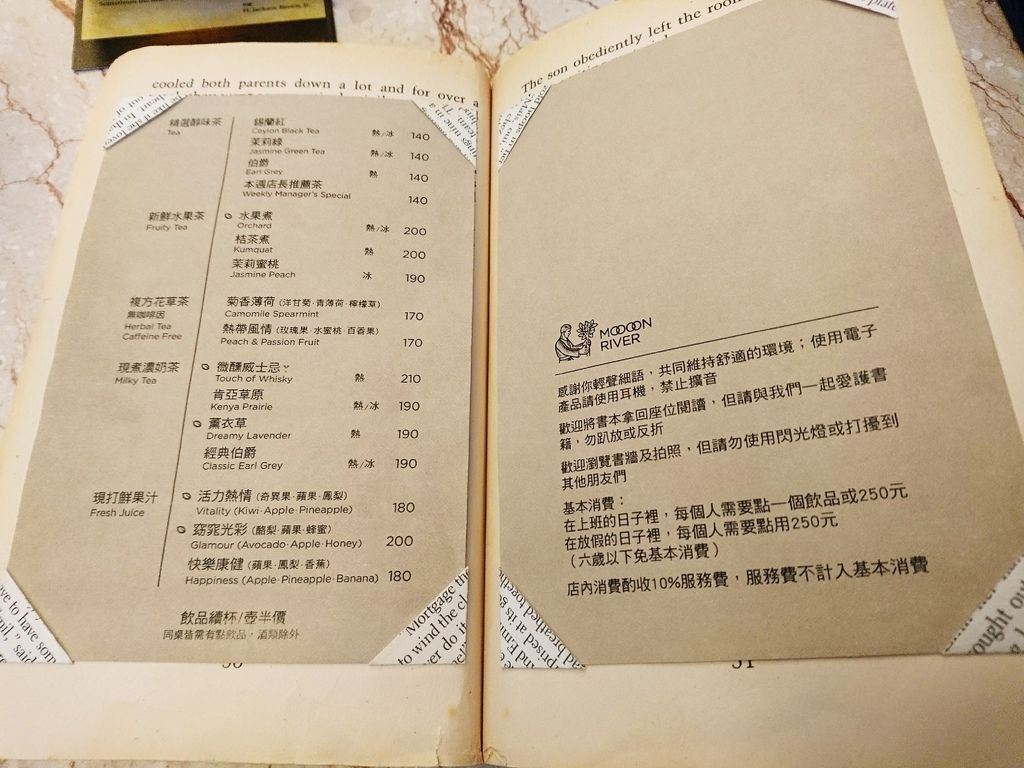 H. Jackson Brown, Jr.
cooled both parents down a lot and for over a
精選醇味茶
Tea
錫蘭紅 熱/冰 140
Ceylon Black Tea
茉莉綠 熱/冰 140
Jasmine Green Tea
伯爵 熱 140
Earl Grey
本週店長推薦茶 140
Weekly Manager's Special
新鮮水果茶
Fruity Tea
水果煮 熱/冰 200
Orchard
桔茶煮 熱 200
Kumquat
茉莉蜜桃 冰 190
Jasmine Peach
複方花草茶
無咖啡因
Herbal Tea
Caffeine Free
菊香薄荷 (洋甘菊·青薄荷·檸檬草) 170
Camomile Spearmint
熱帶風情 (玫瑰果·水蜜桃·百香果) 170
Peach & Passion Fruit
現煮濃奶茶
Milky Tea
微醺威士忌 熱 210
Touch of Whisky
肯亞草原 熱/冰 190
Kenya Prairie
薰衣草 熱 190
Dreamy Lavender
經典伯爵 熱/冰 190
Classic Earl Grey
現打鮮果汁
Fresh Juice
活力熱情 (奇異果·蘋果·鳳梨) 180
Vitality (Kiwi·Apple·Pineapple)
窈窕光彩 (酪梨·蘋果·蜂蜜) 200
Glamour (Avocado·Apple·Honey)
快樂康健 (蘋果·鳳梨·香蕉) 180
Happiness (Apple·Pineapple·Banana)
飲品續杯/壺半價
同桌皆需有點飲品，酒類除外
Mortgage the
to wind the cl
ver do it
50
The son obediently left the room
MOOOON
RIVER
感謝你輕聲細語，共同維持舒適的環境；使用電子
產品請使用耳機，禁止擴音
歡迎將書本拿回座位閱讀，但請與我們一起愛護書
籍，勿趴放或反折
歡迎瀏覽書牆及拍照，但請勿使用閃光燈或打擾到
其他朋友們
基本消費：
在上班的日子裡，每個人需要點一個飲品或250元
在放假的日子裡，每個人需要點用250元
（六歲以下免基本消費）
店內消費酌收10%服務費，服務費不計入基本消費
ought ou
51